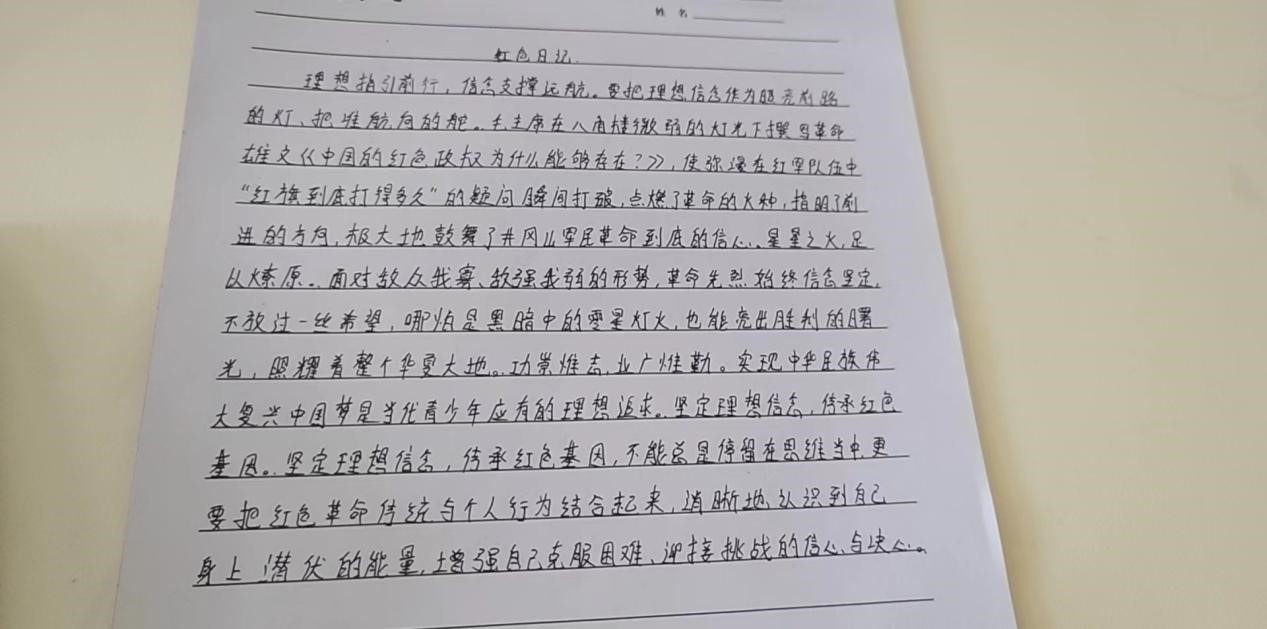 姓 名
红色日记
理想指引前行，信念支撑远航。要把理想信念作为照亮前路
的灯、把准航向的舵。毛主席在八角楼微弱的灯光下撰写革命
雄文《中国的红色政权为什么能够存在？》，使弥漫在红军队伍中
“红旗到底打得多久”的疑问瞬间打破，点燃了革命的火种，指明了前
进的方向，极大地鼓舞了井冈山军民革命到底的信心。星星之火，足
以燎原。面对敌众我寡、敌强我弱的形势，革命先烈始终信念坚定，
不放过一丝希望，哪怕是黑暗中的零星灯火，也能亮出胜利的曙
光，照耀着整个华夏大地。功崇惟志，业广惟勤。实现中华民族伟
大复兴中国梦是当代青少年应有的理想追求。坚定理想信念，传承红色
基因。坚定理想信念，传承红色基因，不能总是停留在思维当中，更
要把红色革命传统与个人行为结合起来，清晰地认识到自己
身上潜伏的能量，增强自己克服困难、迎接挑战的信心与决心。